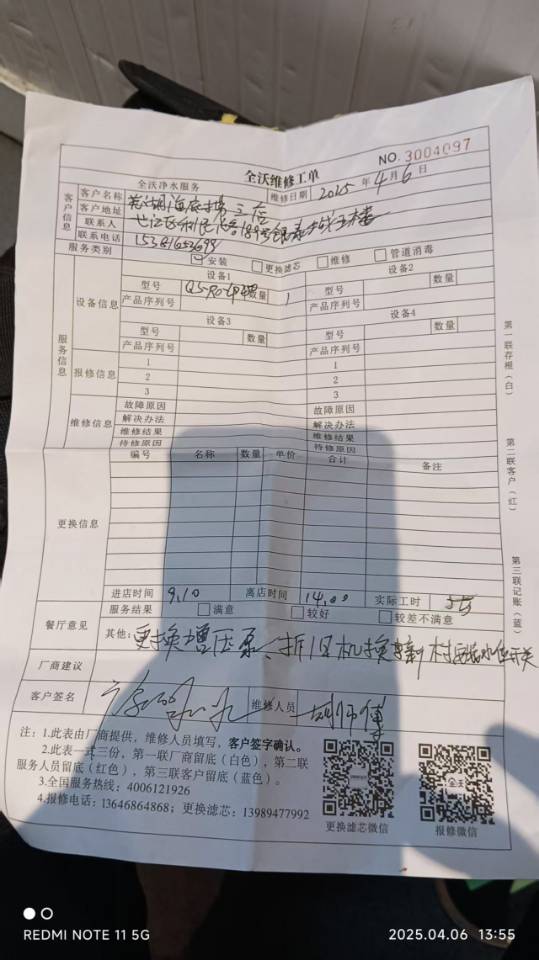 NO. 3004097
全沃维修工单
全沃净水服务 维修日期 2025 年 4 月 6 日
客户信息
客户名称
客户地址
联系人
联系电话
服务类别 安装 更换滤芯 维修 管道消毒
服务信息
设备信息
设备1 设备2
型号 数量 1 型号 数量
产品序列号 产品序列号
设备3 设备4
型号 数量 型号 数量
产品序列号 产品序列号
报修信息
1 1
2 2
3 3
维修信息
故障原因 故障原因
解决办法 解决办法
维修结果 维修结果
待修原因 待修原因
更换信息
编号 名称 数量 单价 合计 备注
进店时间 9.10 离店时间 14.00 实际工时
餐厅意见
服务结果 满意 较好 较差不满意
其他: 更换增压泵、拆旧机换接新
厂商建议
客户签名 维修人员 胡师傅
注: 1.此表由厂商提供,维修人员填写,客户签字确认。
2.此表一式三份,第一联厂商留底(白色),第二联
服务人员留底(红色),第三联客户留底(蓝色)。
3.全国服务热线: 4006121926
4.报修电话: 13646864868; 更换滤芯: 13989477992
更换滤芯微信 报修微信
全沃
第一联存根(白)
第二联客户(红)
第三联记账(蓝)
REDMI NOTE 11 5G 2025.04.06 13:55